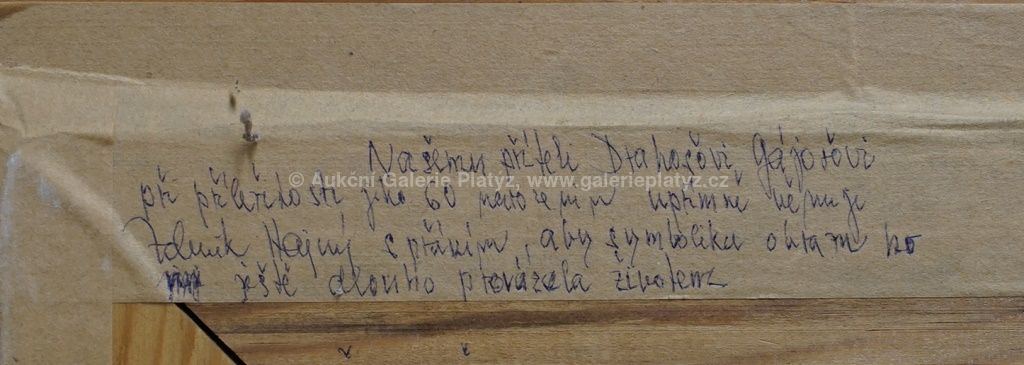 Našemu příteli Drahošovi Gájořovi
© Aukční Galerie Platýz, www.galerieplatyz.cz
při příležitosti jeho 60 narozenin upřímně věnuje
Zdeněk Hajný s přáním, aby symbolika obrazu ho
ještě dlouho provázela životem